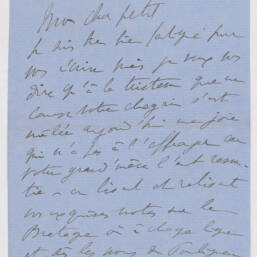 Mon cher petit
Je suis bien fatigué pour
vous écrire mais je veux vous
dire qu'à la tristesse que me
cause votre chagrin s'est
mêlée aujourd'hui une joie
qui n'a pas à l'effacer car
votre grand'mère l'eût ressen
tie - en lisant et relisant
vos exquises notes sur la
Bretagne où à chaque ligne
et dès les noms de